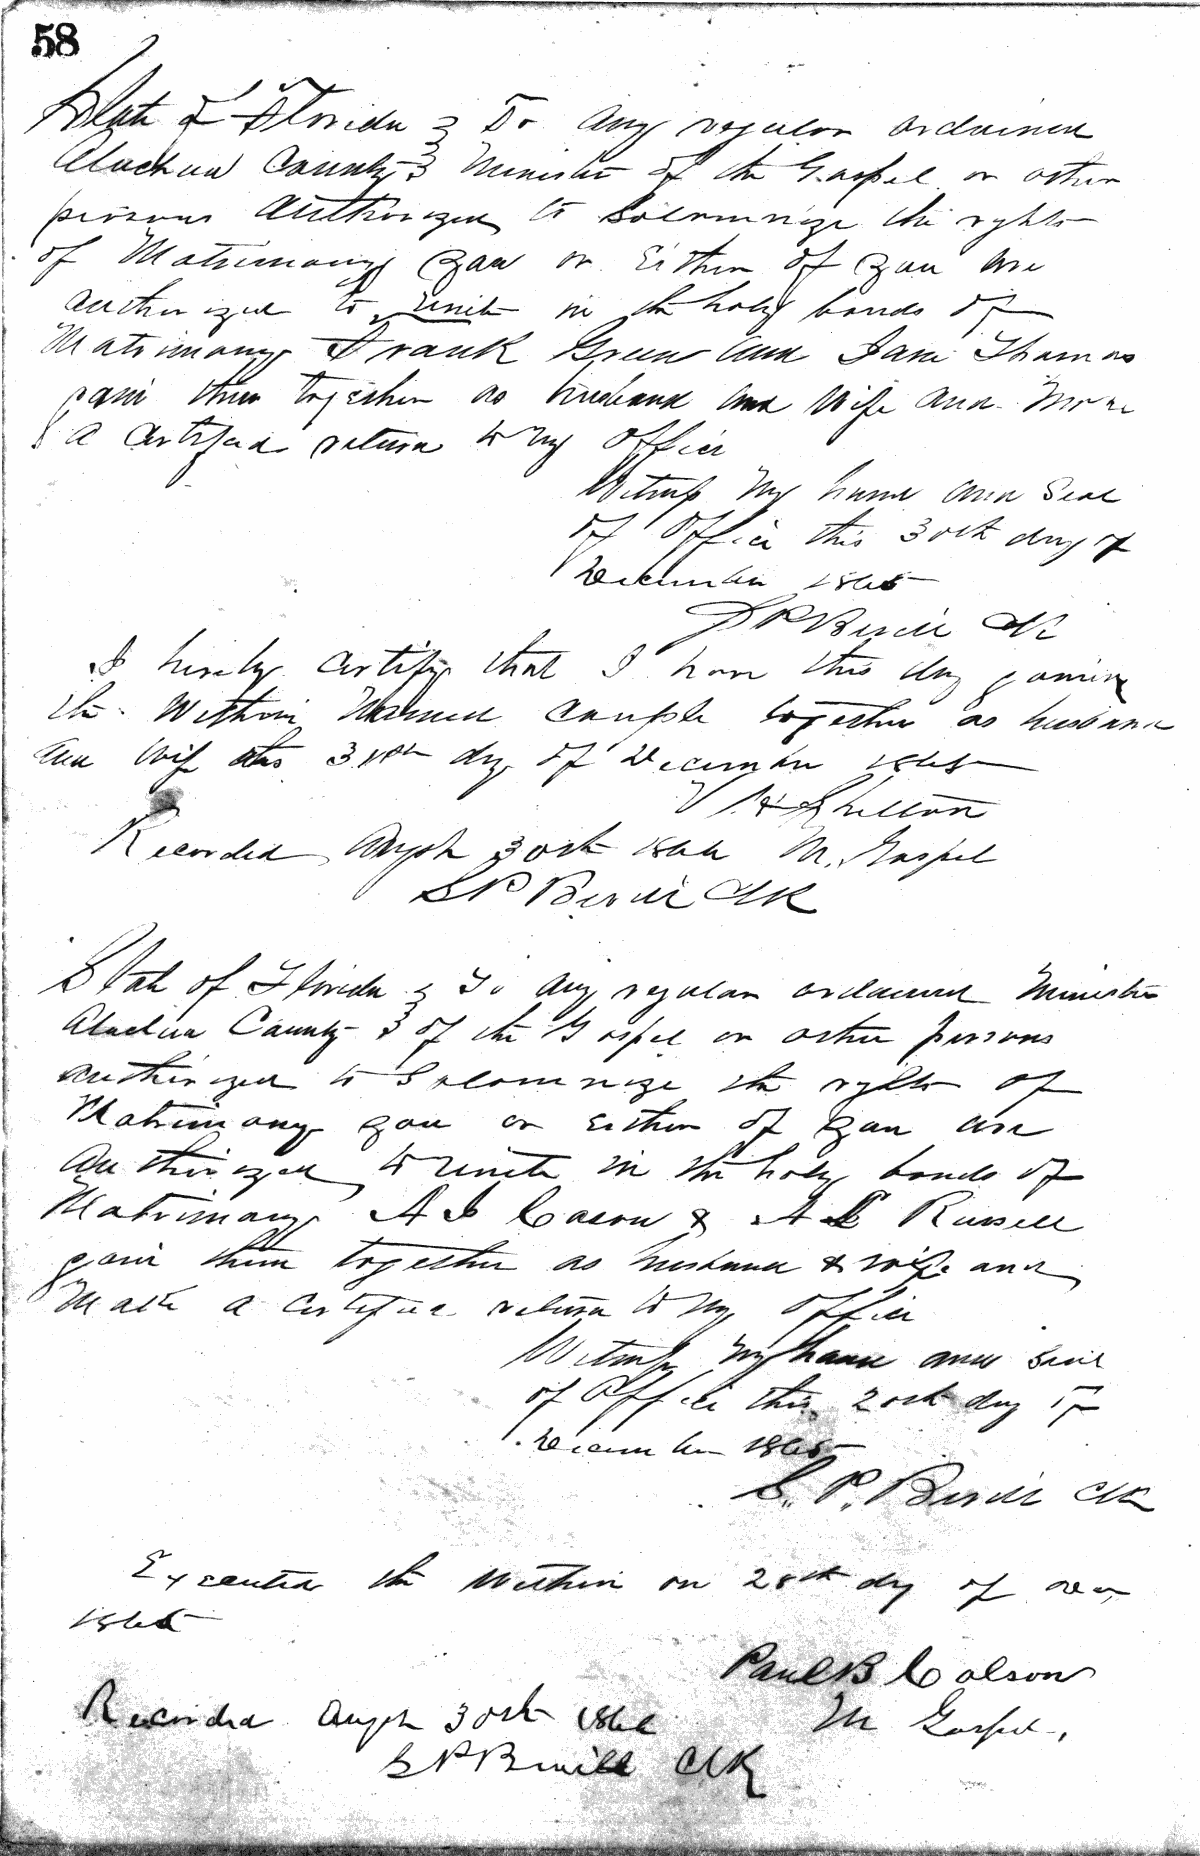 58
State of Florida } To any regular ordained
Alachua County } Minister of the Gospel or other
persons Authorized to Solemnize the rights
of Matrimony you or Either of you are
authorized to unite in the holy bonds of
Matrimony Frank Green and Jane Thomas
join them together as husband and Wife and Make
a Certified return to my office
Witness My hand and Seal
of Office this 30th day of
December 1865
S P Bevill Clk
I hereby Certify that I have this day joined
the Within Named Couple together as husband
and Wife this 31st day of December 1865
Shelton
Recorded Augst 30th 1866 M. Gospel
S P Bevill Clk
State of Florida } To any regular ordained Minister
Alachua County } of the Gospel or other persons
authorized to Solemnize the rights of
Matrimony you or Either of you are
Authorized to unite in the holy bonds of
Matrimony A I Cason & A L Russell
join them together as husband & wife and
Make a Certified return to My office
Witness My hand and Seal
of Office this 20th day of
December 1865
S. P. Bevill Clk
Executed the Within on 28th day of Dec
1865
Paul B Colson
Recorded Augst 30th 1866 M Gospel,
S P Bevill Clk